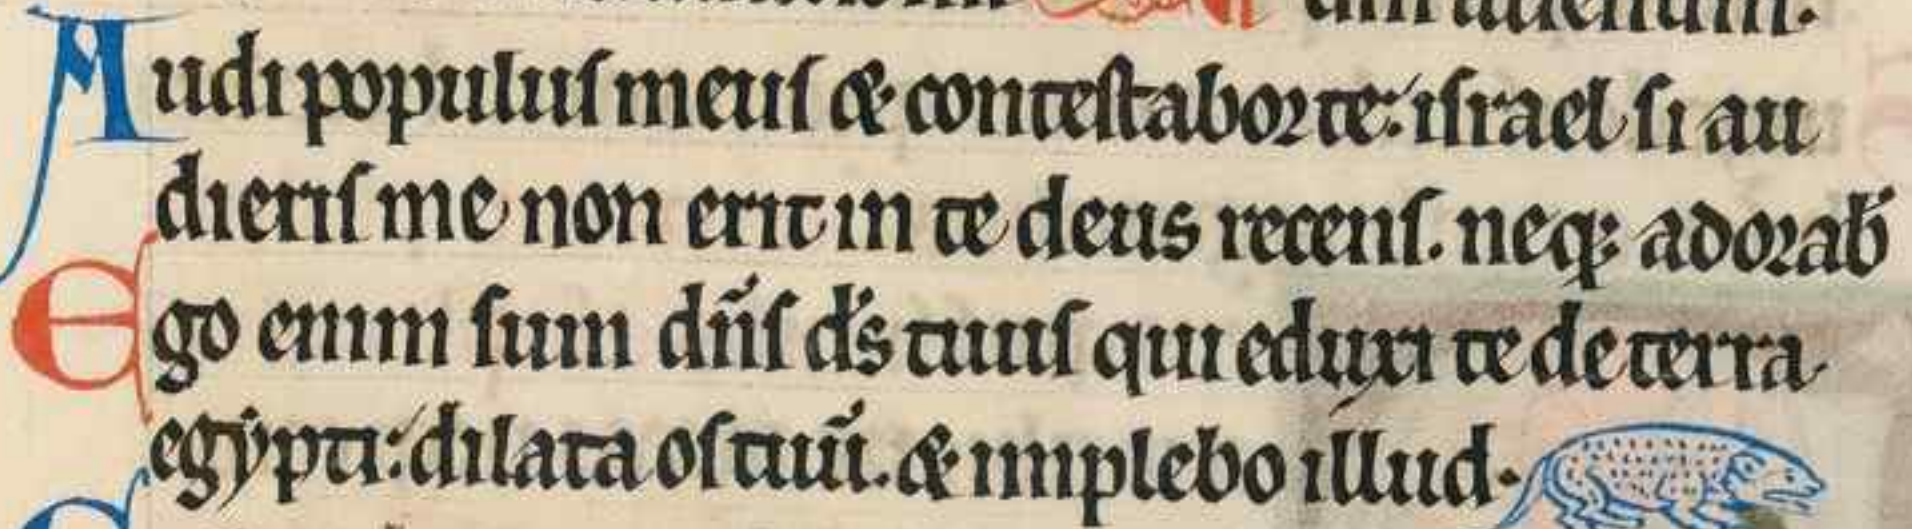 Audi populuſ meuſ & conteſtabor te: iſrael ſi au
dieriſ me non erit in te deus recenſ. neq; adorab̄
Ego enim ſum dn̄ſ d̄s tuuſ qui eduxi te de terra
egẏpti: dilata oſ tuū. & implebo illud.